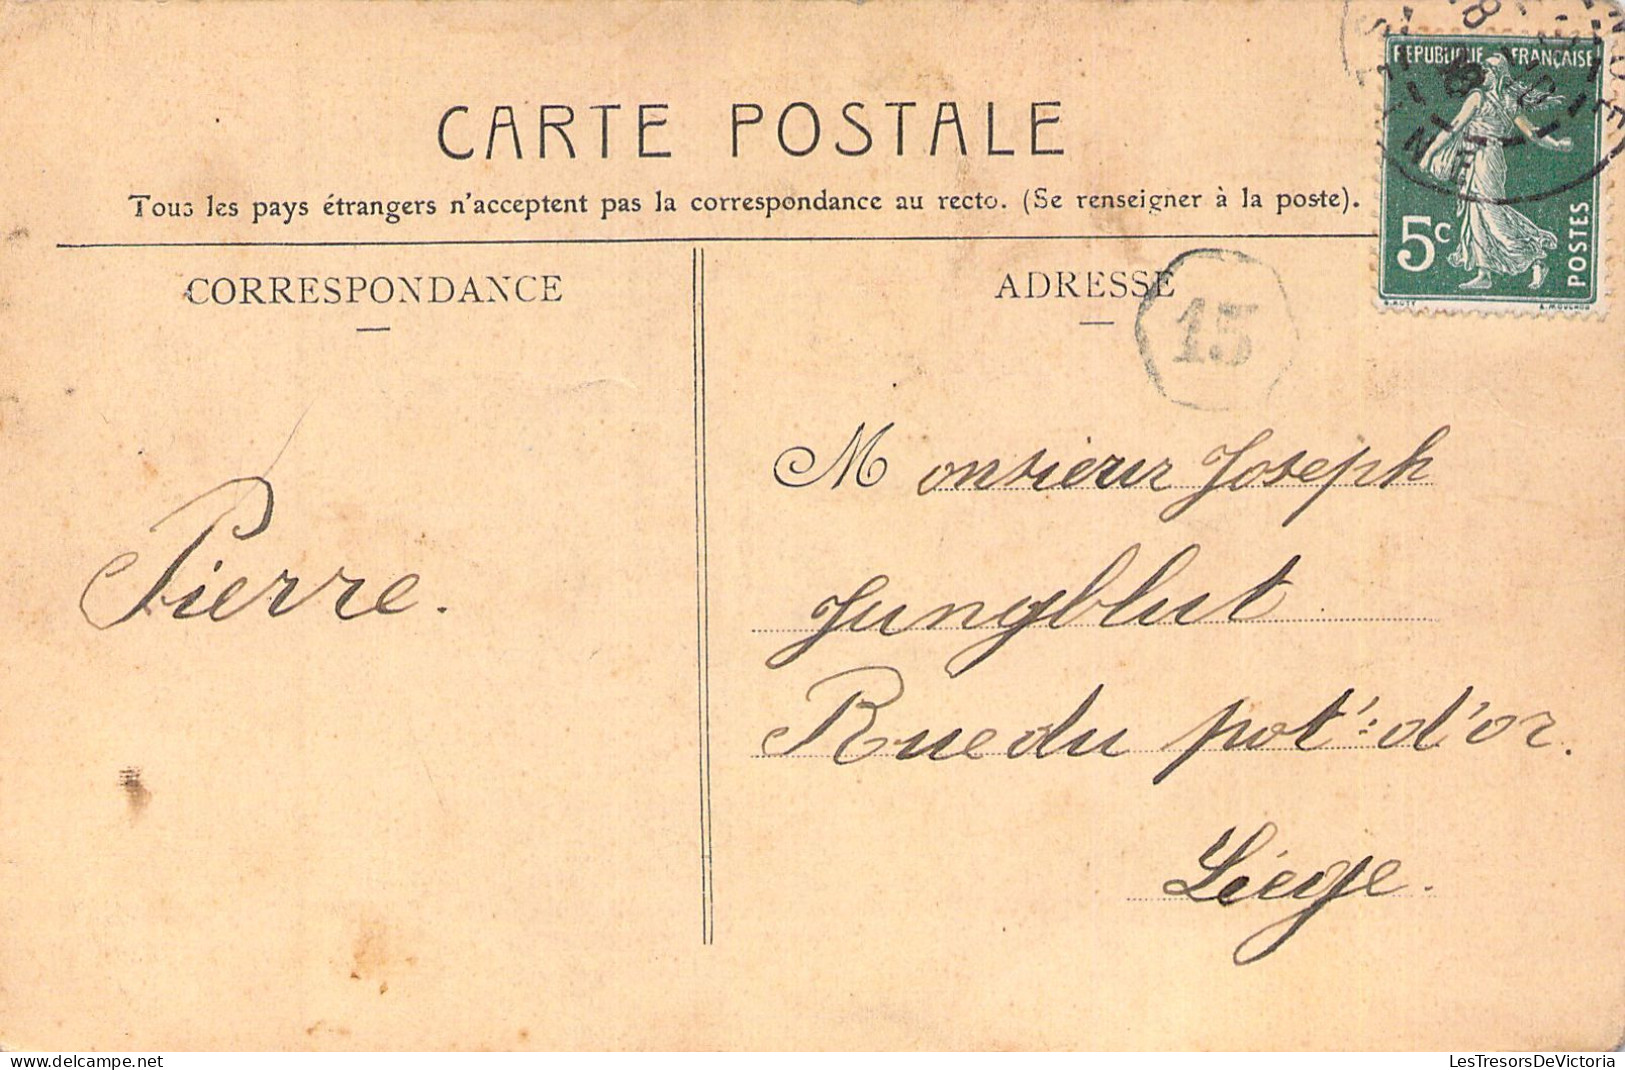 CARTE POSTALE
Tous les pays étrangers n'acceptent pas la correspondance au recto. (Se renseigner à la poste).
CORRESPONDANCE
ADRESSE
REPUBLIQUE FRANÇAISE
5c
POSTES
15
Monsieur Joseph
Jungblut
Rue du pot': d'or.
Liége.
Pierre.
delcampe.net
LesTresorsDeVictoria